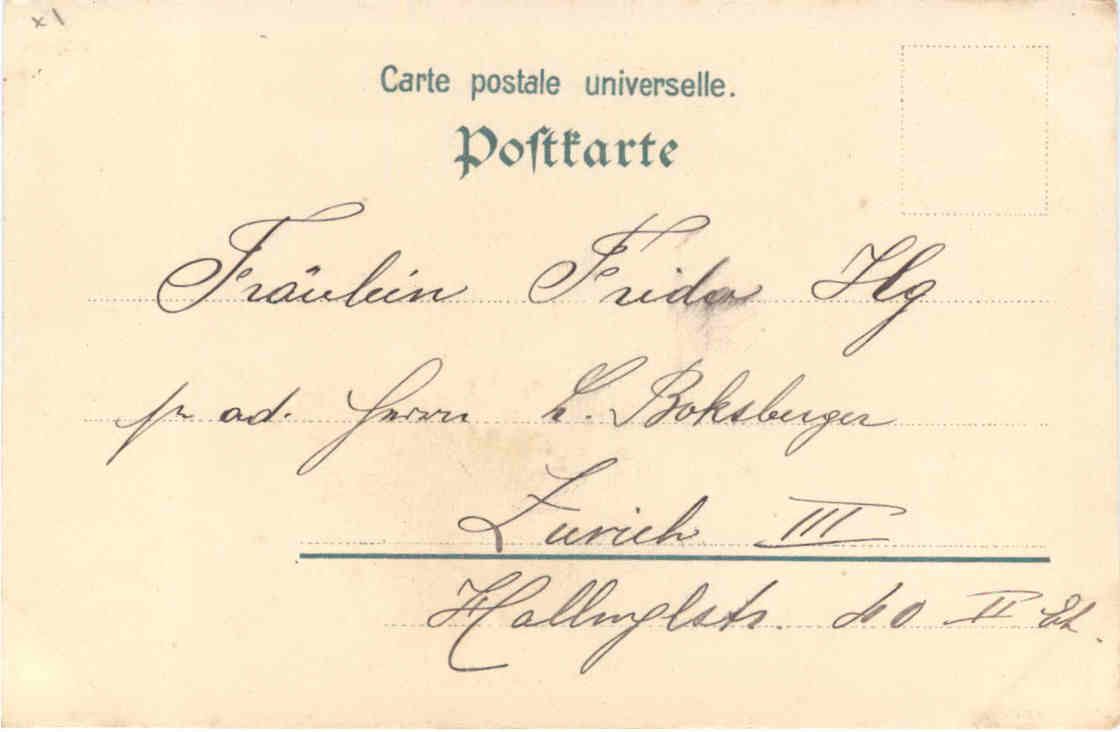 x1
Carte postale universelle.
Postkarte
Fräulein Frida Ilg
pr ad. Herrn L. Boksberger
Zürich III
40 II Et.